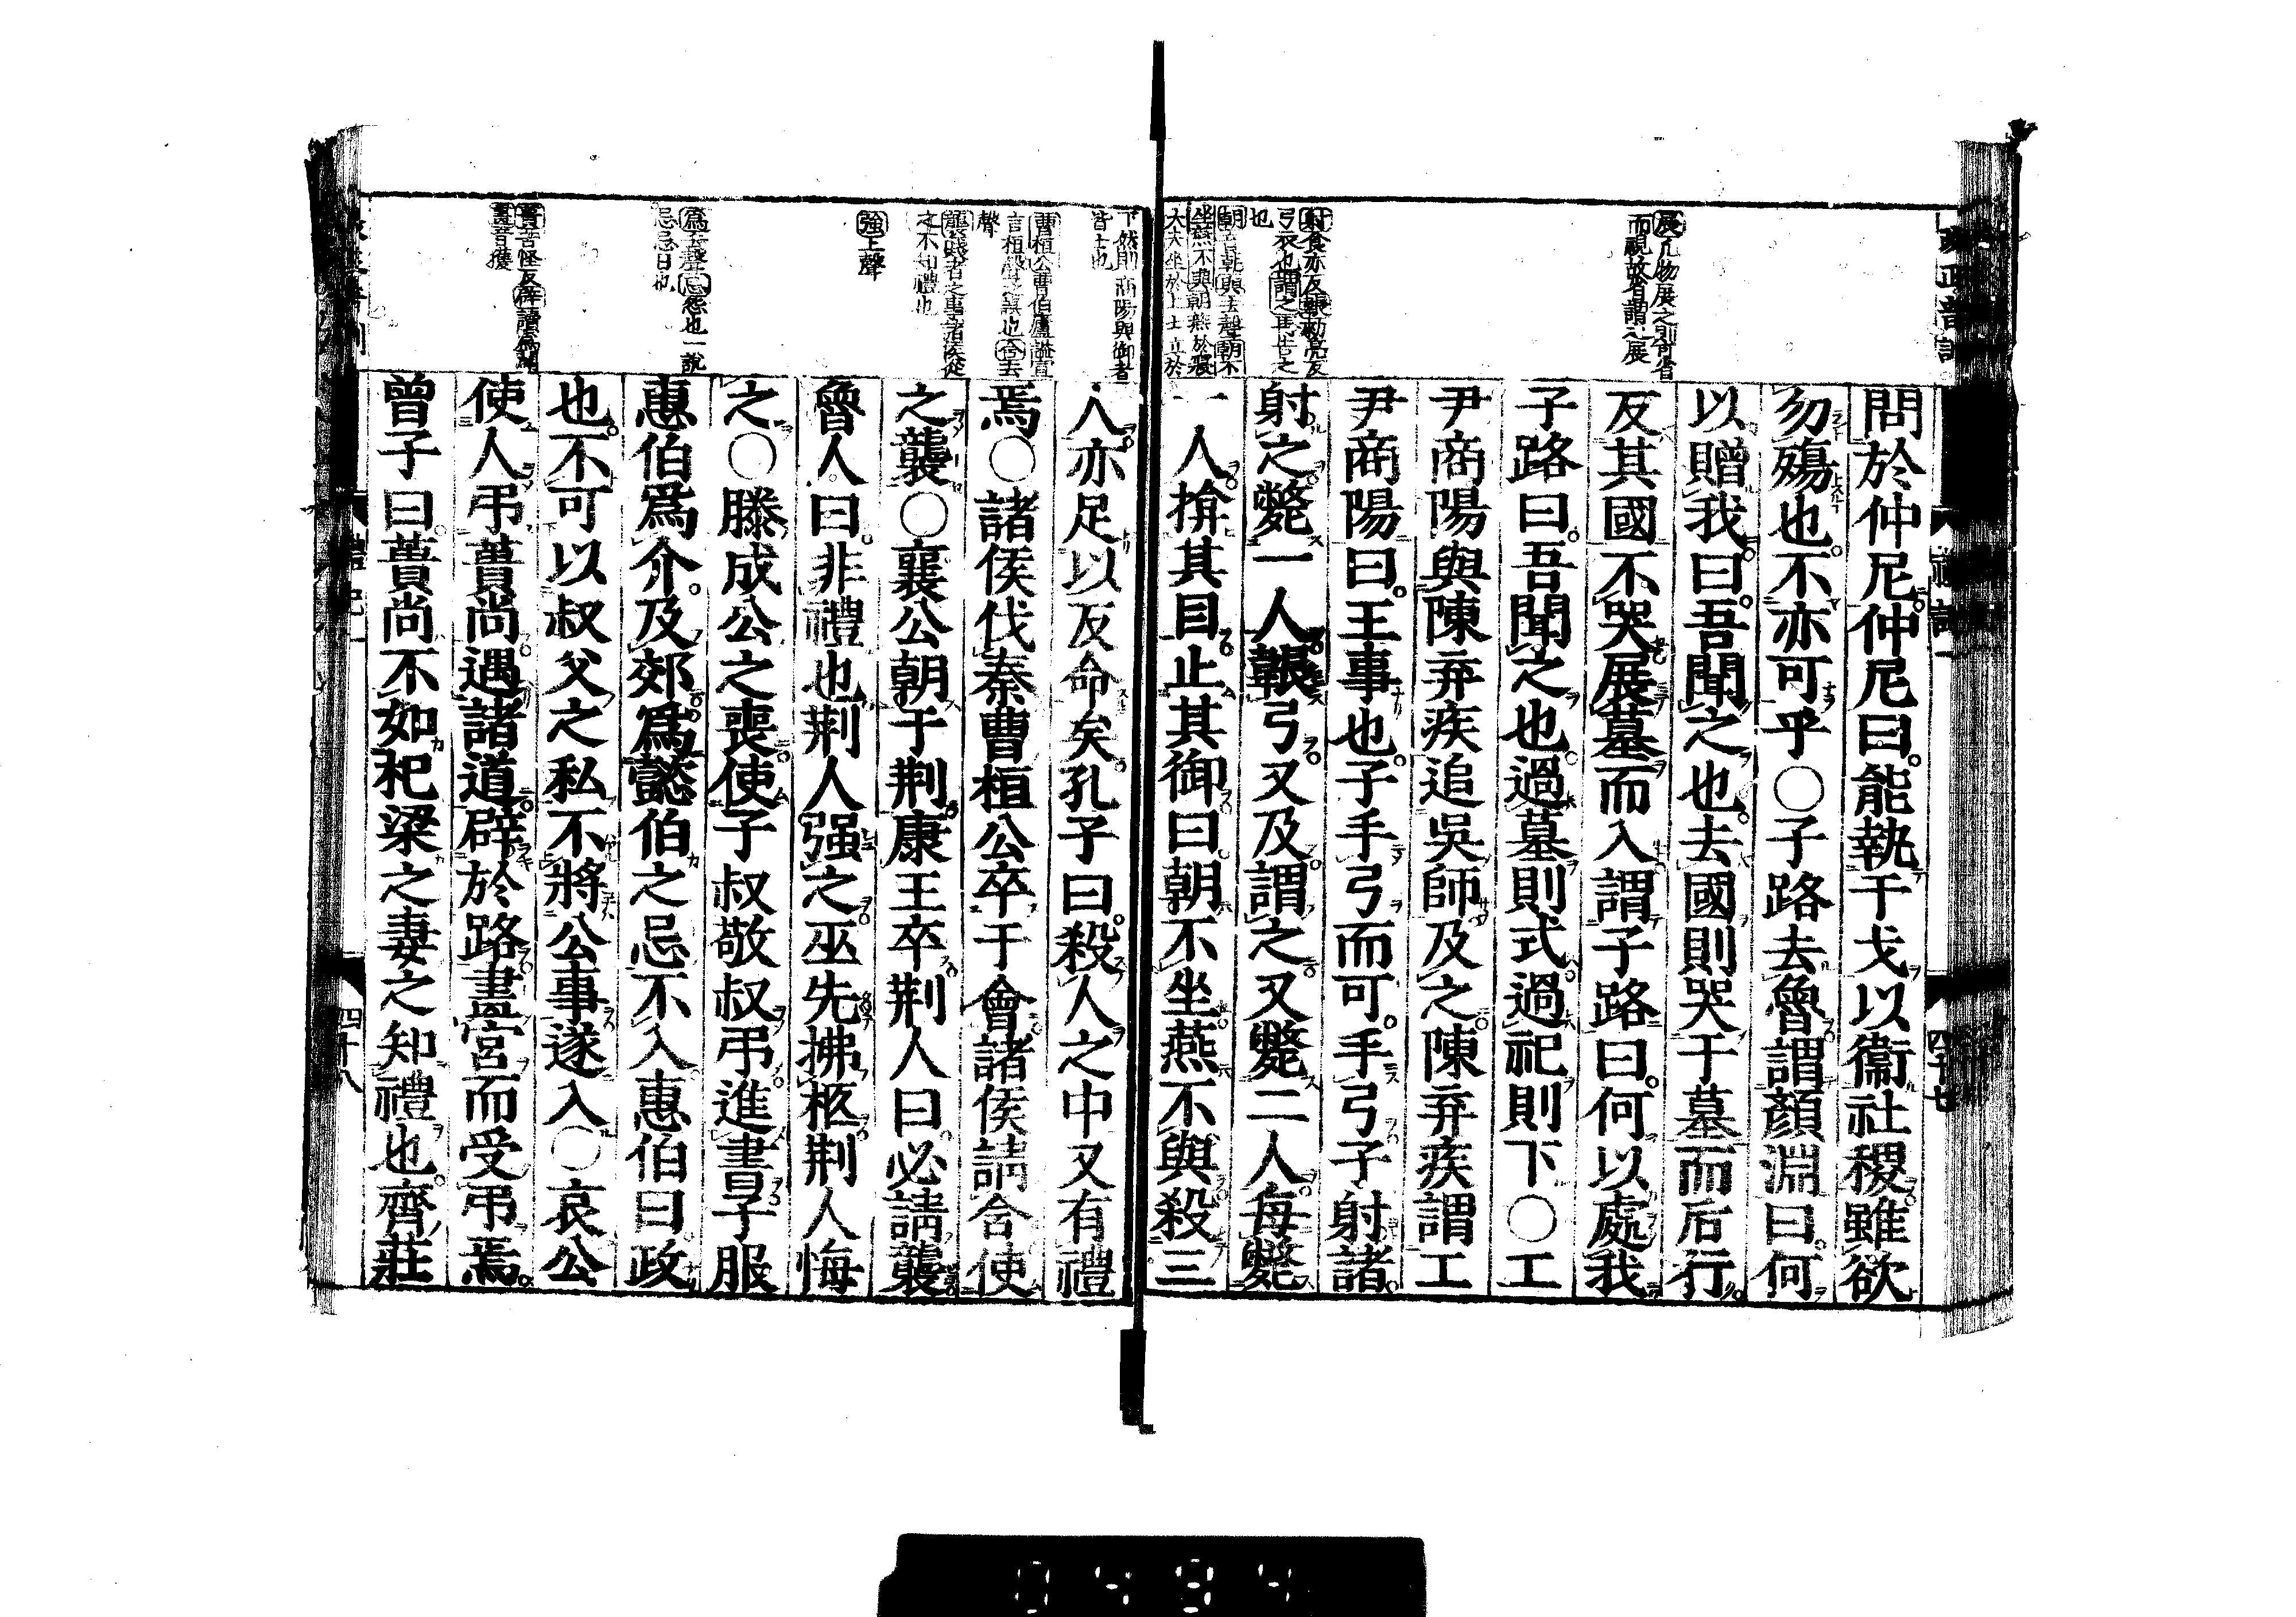 問於仲尼仲尼曰能執干戈以衞社稷雖欲
勿殤也不亦可乎○子路去魯謂顏淵曰何
以贈我曰吾聞之也去國則哭于墓而后行
反其國不哭展墓而入謂子路曰何以處我
子路曰吾聞之也過墓則式過祀則下○工
尹商陽與陳弃疾追吳師及之陳弃疾謂工
尹商陽曰王事也子手弓而可手弓子射諸
射之斃一人韔弓又及謂之又斃二人每斃
一人揜其目止其御曰朝不坐燕不與殺三
人亦足以反命矣孔子曰殺人之中又有禮
焉○諸侯伐秦曹桓公卒于會諸侯請含使
之襲○襄公朝于荆康王卒荆人曰必請襲
魯人曰非禮也荆人强之巫先拂柩荆人悔
之○滕成公之喪使子叔敬叔弔進書子服
惠伯爲介及郊爲懿伯之忌不入惠伯曰政
也不可以叔父之私不將公事遂入○哀公
使人弔蕢尚遇諸道辟於路畫宮而受弔焉
曾子曰蕢尚不如杞梁之妻之知禮也齊莊
展凡物展之則可省
而視故省謂之展
射食亦反韔勑亮反
弓衣也謂之再告之
也
朝直遙反與去聲朝不
坐燕不與朝燕於寢
大夫坐於上士立於
下然則商陽與御者
皆士也
曹桓公曹伯廬謚宣
言桓聲之誤也含去
聲
襲賤者之事諸侯從
之不知禮也
強上聲
爲去聲忌怨也一說
忌忌日也
蕢苦怪反辟讀爲闢
畫音獲
禮記一
四十七
四十八